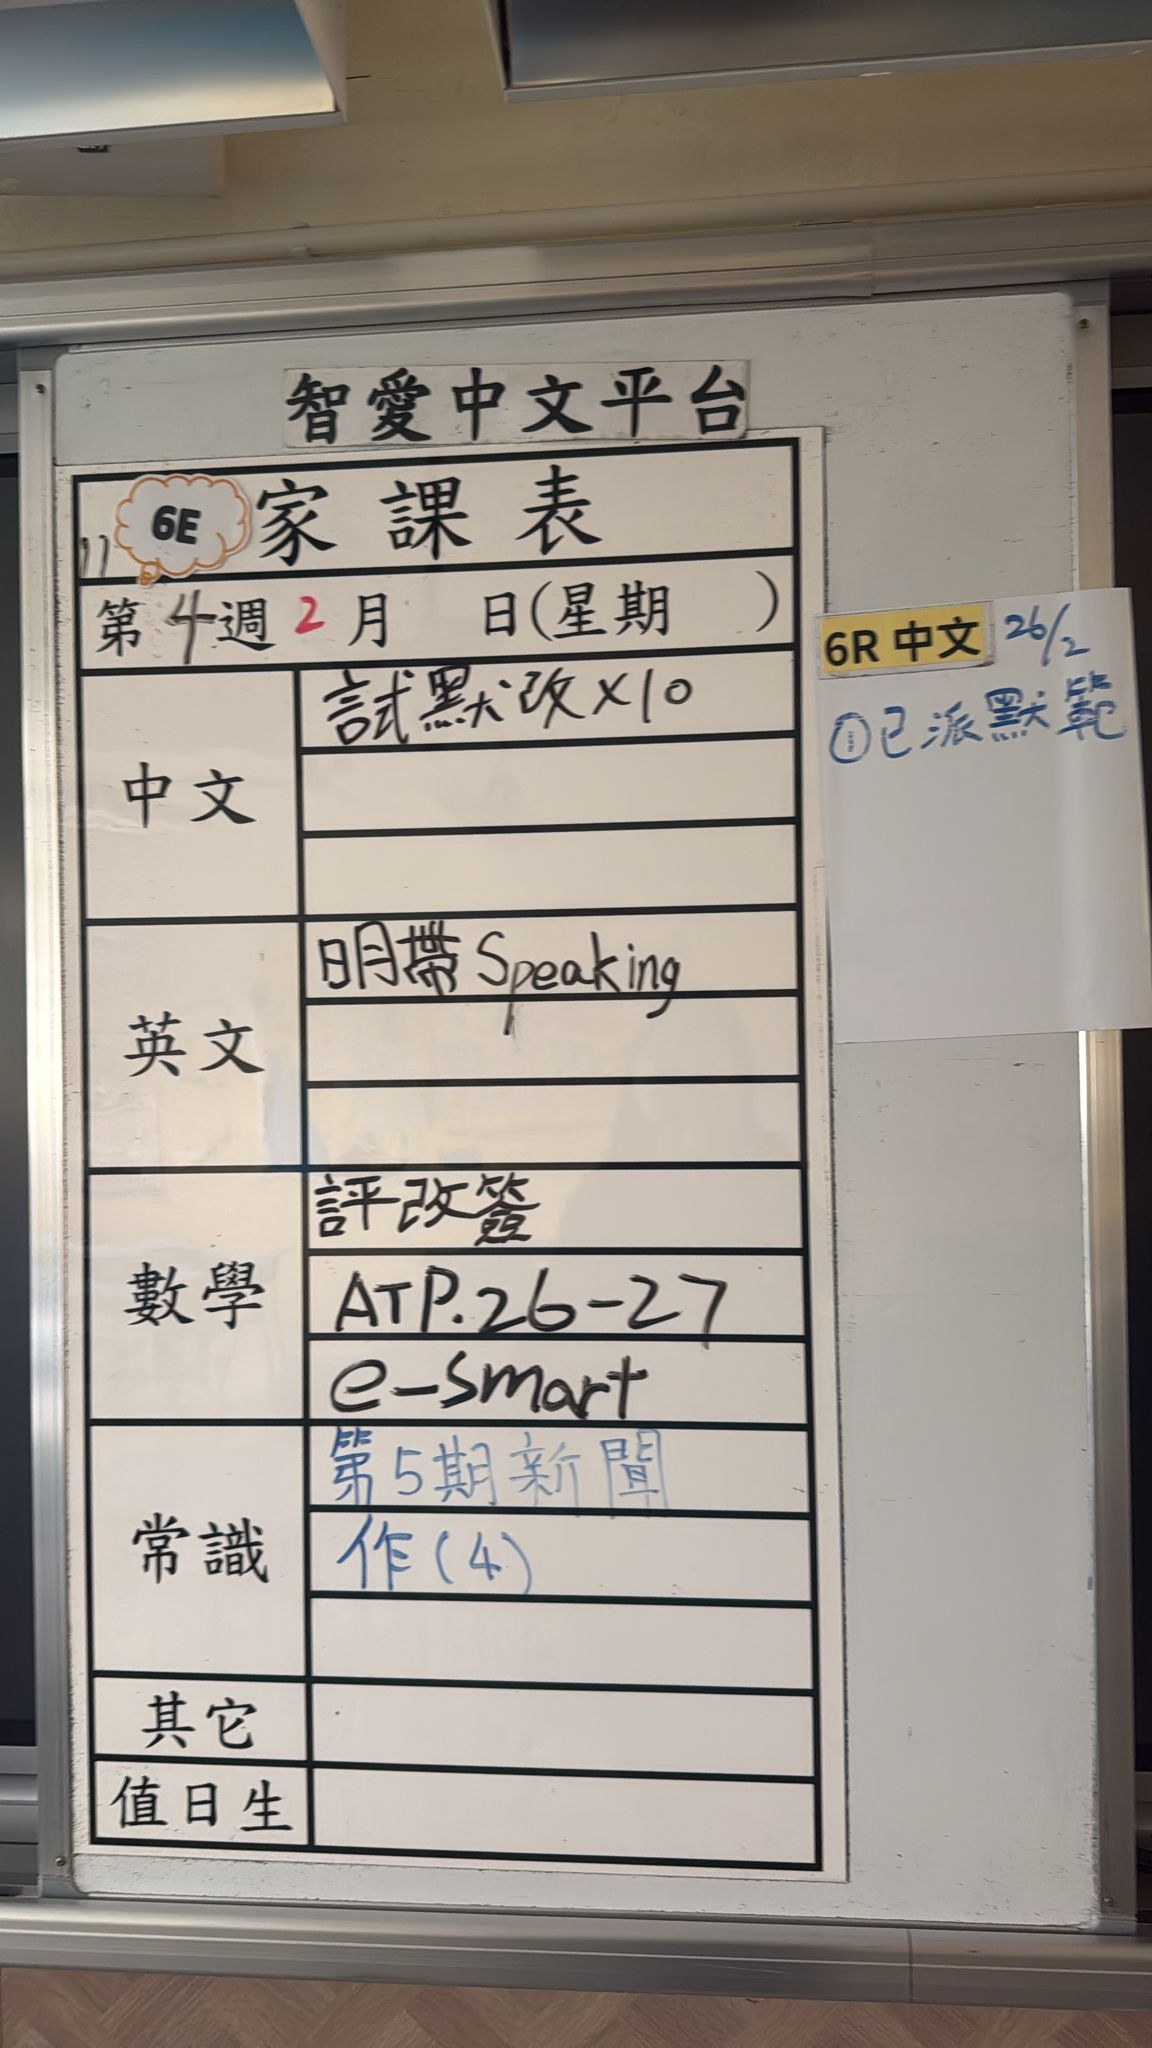 智愛中文平台
6E 家課表
第4週2月 日(星期 )
中文
試默改X10
英文
明帶Speaking
數學
評改簽
ATP.26-27
e-smart
常識
第5期新聞
作(4)
其它
值日生
6R 中文 26/2
①已派默範